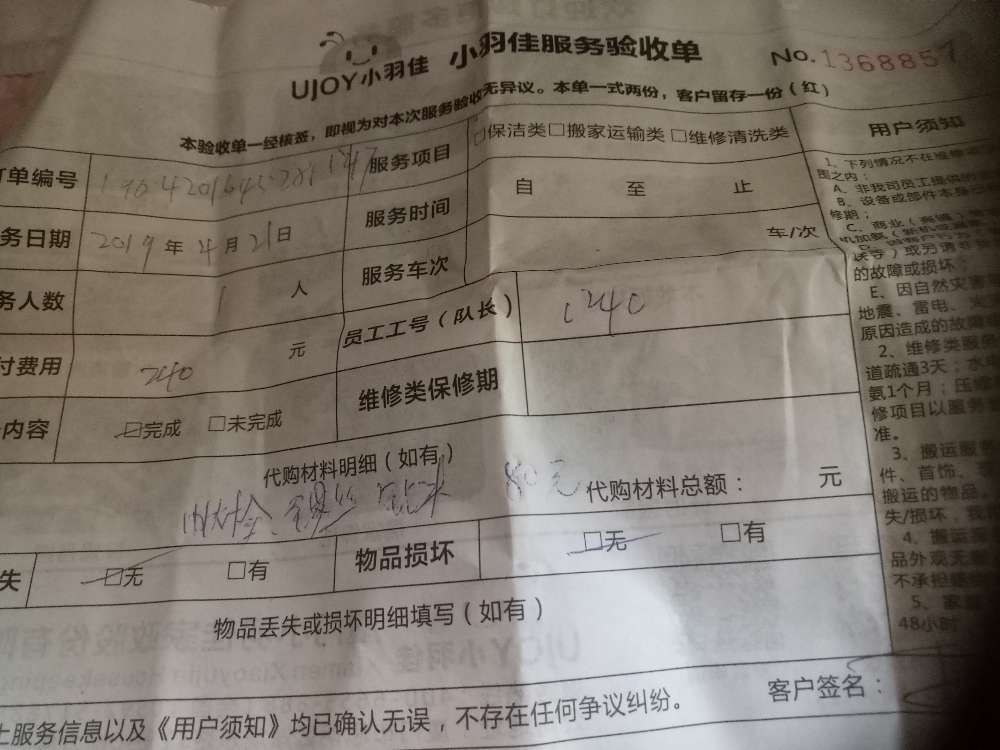 UJOY小羽佳 小羽佳服务验收单 No.1368857
本验收单一经核签，即视为对本次服务验收无异议。本单一式两份，客户留存一份（红）
单编号
服务项目 □保洁类□搬家运输类□维修清洗类
务日期 2019年4月21日
服务时间 自 至 止
务人数 1 人
服务车次 车/次
付费用 240 元
员工工号（队长） 1240
内容 ☑完成 □未完成
维修类保修期
代购材料明细（如有）
80元 代购材料总额： 元
失 ☑无 □有
物品损坏 ☑无 □有
物品丢失或损坏明细填写（如有）
上服务信息以及《用户须知》均已确认无误，不存在任何争议纠纷。
客户签名：
用户须知
1、下列情况不在维修
围之内：
A、非我司员工提供的
B、设备或部件本身已
修期；
C、商业
的故障或损坏；
E、因自然灾害
地震、雷电、火
原因造成的故障
2、维修类服务
道疏通3天；水
氨1个月；压
修项目以服务
准。
3、搬运服
件、首饰、
搬运的物品，
失/损坏，我
4、搬运
品外观无
不承担赔
5、家
48小时